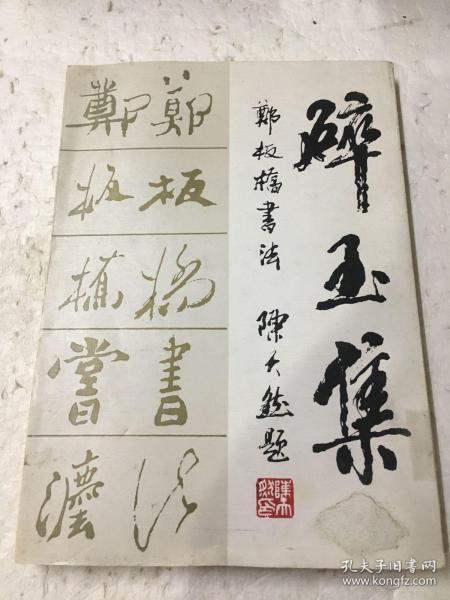 碎玉集
鄭板橋書法 陳大然題
鄭板橋書法
鄭板橋書法
孔夫子旧书网
www.kongfz.com